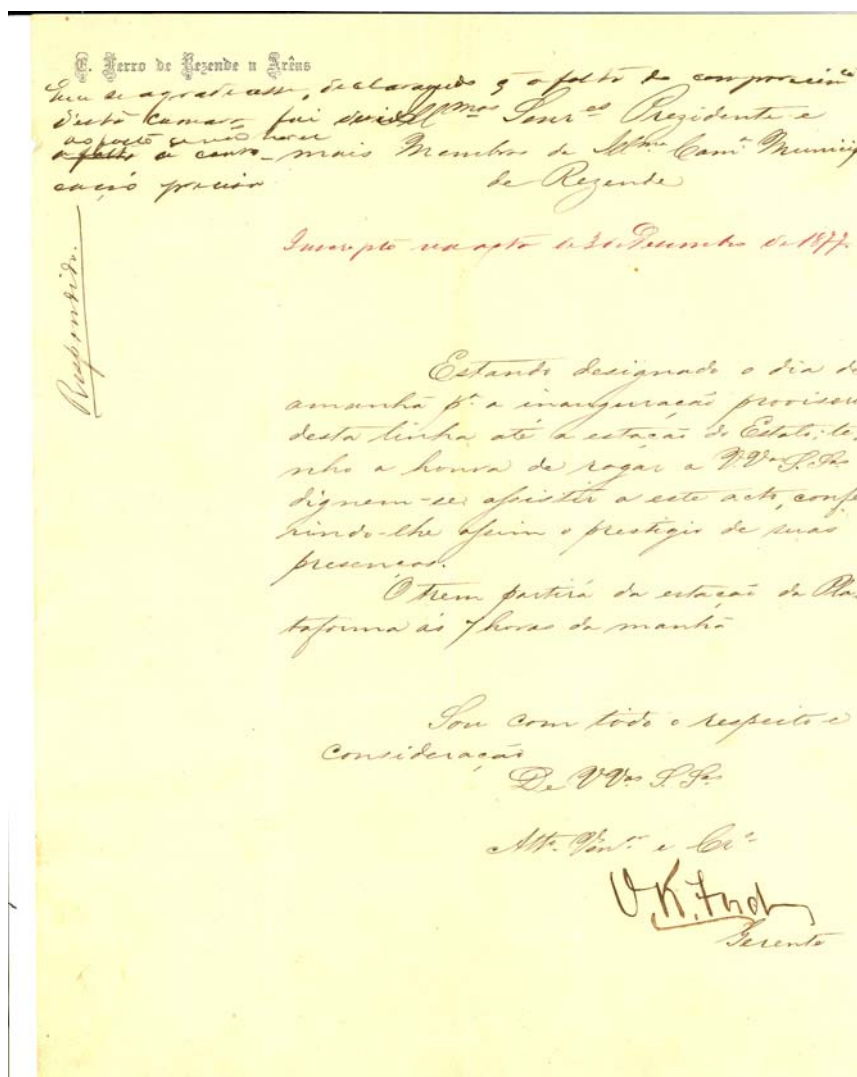 E. Ferro de Rezende a Arêas
que se agradecesse, declarando q̃ a falta de comparecim
desta camara foi
Ill.mos Senr.es Prezidente e
mais Membros da Ill.ma Cam.ª Municip
de Rezende
Respondido.
Inscripto na acta de 3 de Desembro de 1877.
Estando designado o dia de
amanhã p.ª a inauguração provisori
desta linha até a estação do Estato; te-
nho a honra de rogar a V.Vas S.Sas
dignem-se assistir a este acto, confe
rindo-lhe assim o prestigio de suas
presenças.
O trem partirá da estação da Pla-
taforma ás 7 horas da manhã
Sou com todo o respeito e
consideração
De V.Vas S.Sas
Att.º Ven.or e Cr.º
Gerente